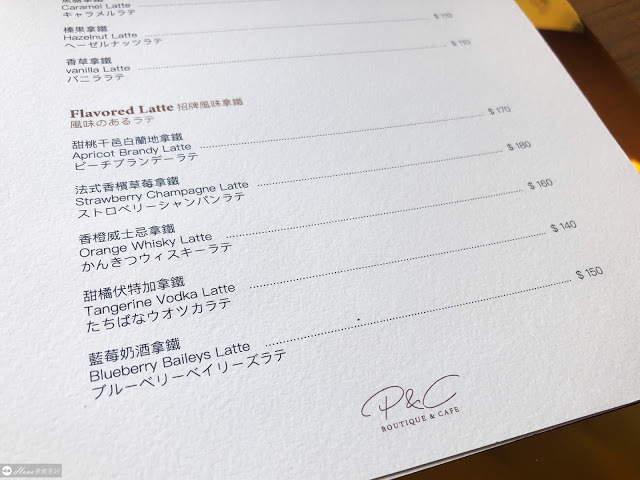 Caramel Latte
キャラメルラテ
榛果拿鐵
Hazelnut Latte $ 110
ヘーゼルナッツラテ
香草拿鐵
vanilla Latte $ 110
バニララテ
Flavored Latte 招牌風味拿鐵
風味のあるラテ
甜桃干邑白蘭地拿鐵
Apricot Brandy Latte $ 170
ピーチブランデーラテ
法式香檳草莓拿鐵
Strawberry Champagne Latte $ 180
ストロベリーシャンパンラテ
香橙威士忌拿鐵
Orange Whisky Latte $ 160
かんきつウィスキーラテ
甜橘伏特加拿鐵
Tangerine Vodka Latte $ 140
たちばなウオツカラテ
藍莓奶酒拿鐵
Blueberry Baileys Latte $ 150
ブルーベリーベイリーズラテ
P&C
BOUTIQUE & CAFE